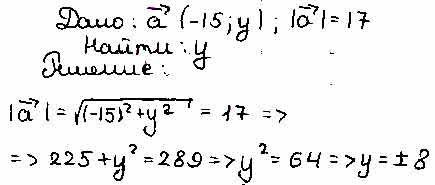 Дано: a⃗ (-15; y); |a⃗| = 17
Найти: y
Решение:
|a⃗| = √((-15)² + y²) = 17 =>
=> 225 + y² = 289 => y² = 64 => y = ± 8